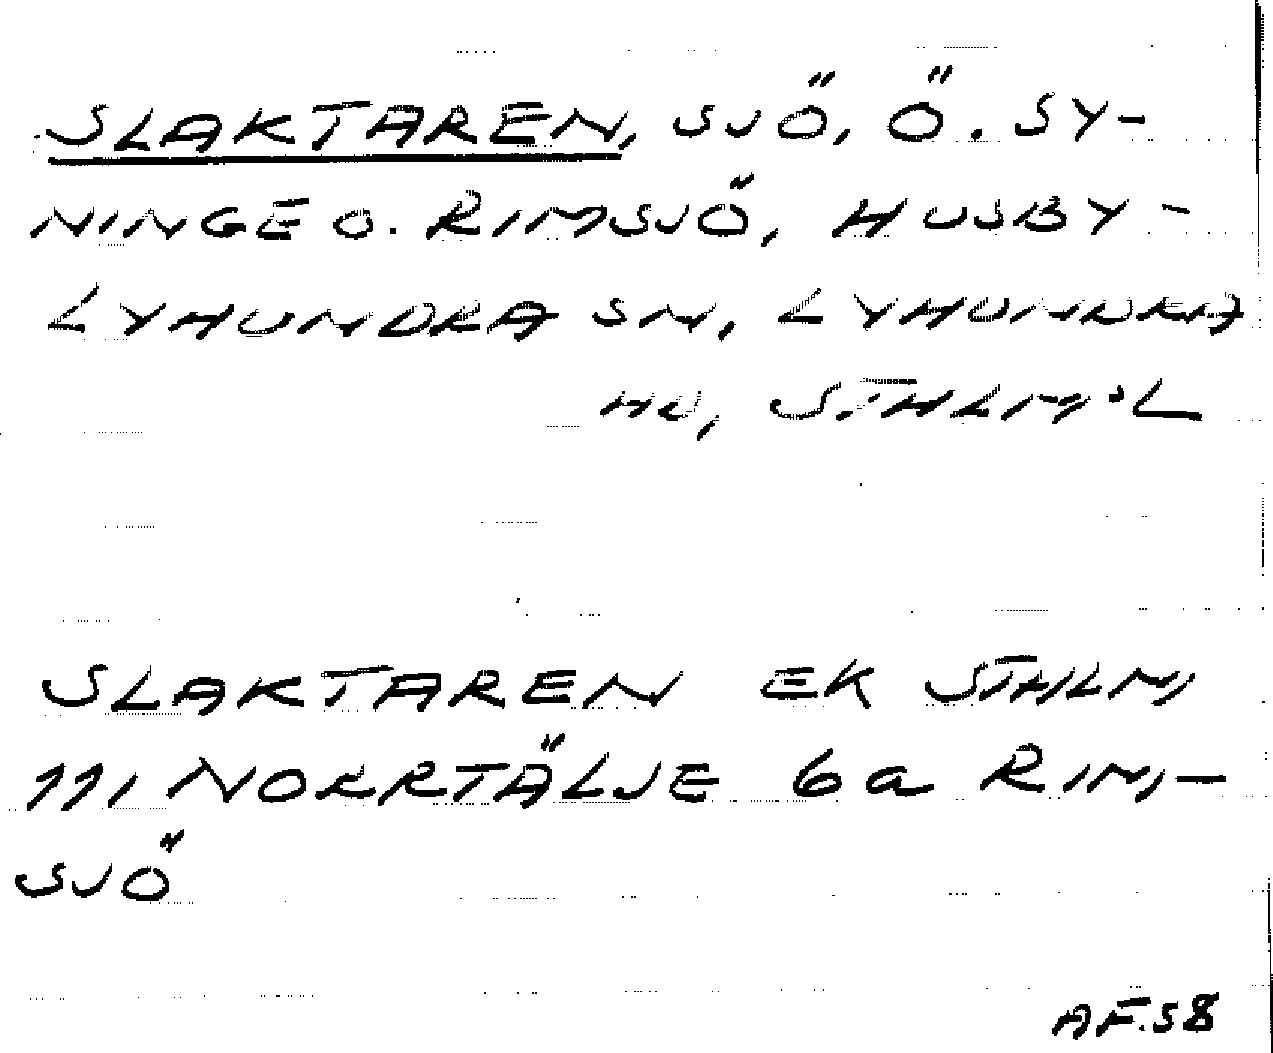 SLAKTAREN, SJÖ, Ö. SY-
NINGE O. RIMSJÖ, HUSBY-
LYHUNDRA SN, LYHUNDRA
HD, STHLMS L
SLAKTAREN EK STHLM
11, NORRTÄLJE 6a RIM-
SJÖ
AF.58